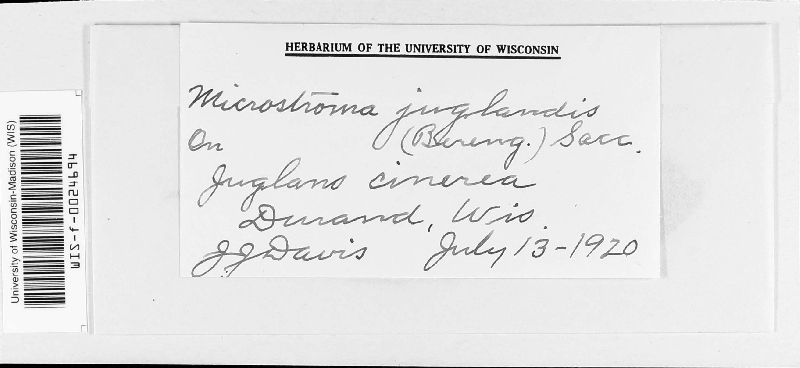 HERBARIUM OF THE UNIVERSITY OF WISCONSIN
Microstroma juglandis
On (Bereng.) Sacc.
Juglans cinerea
Durand, Wis.
J J Davis July 13-1920
University of Wisconsin-Madison (WIS)
WIS-f-0024694